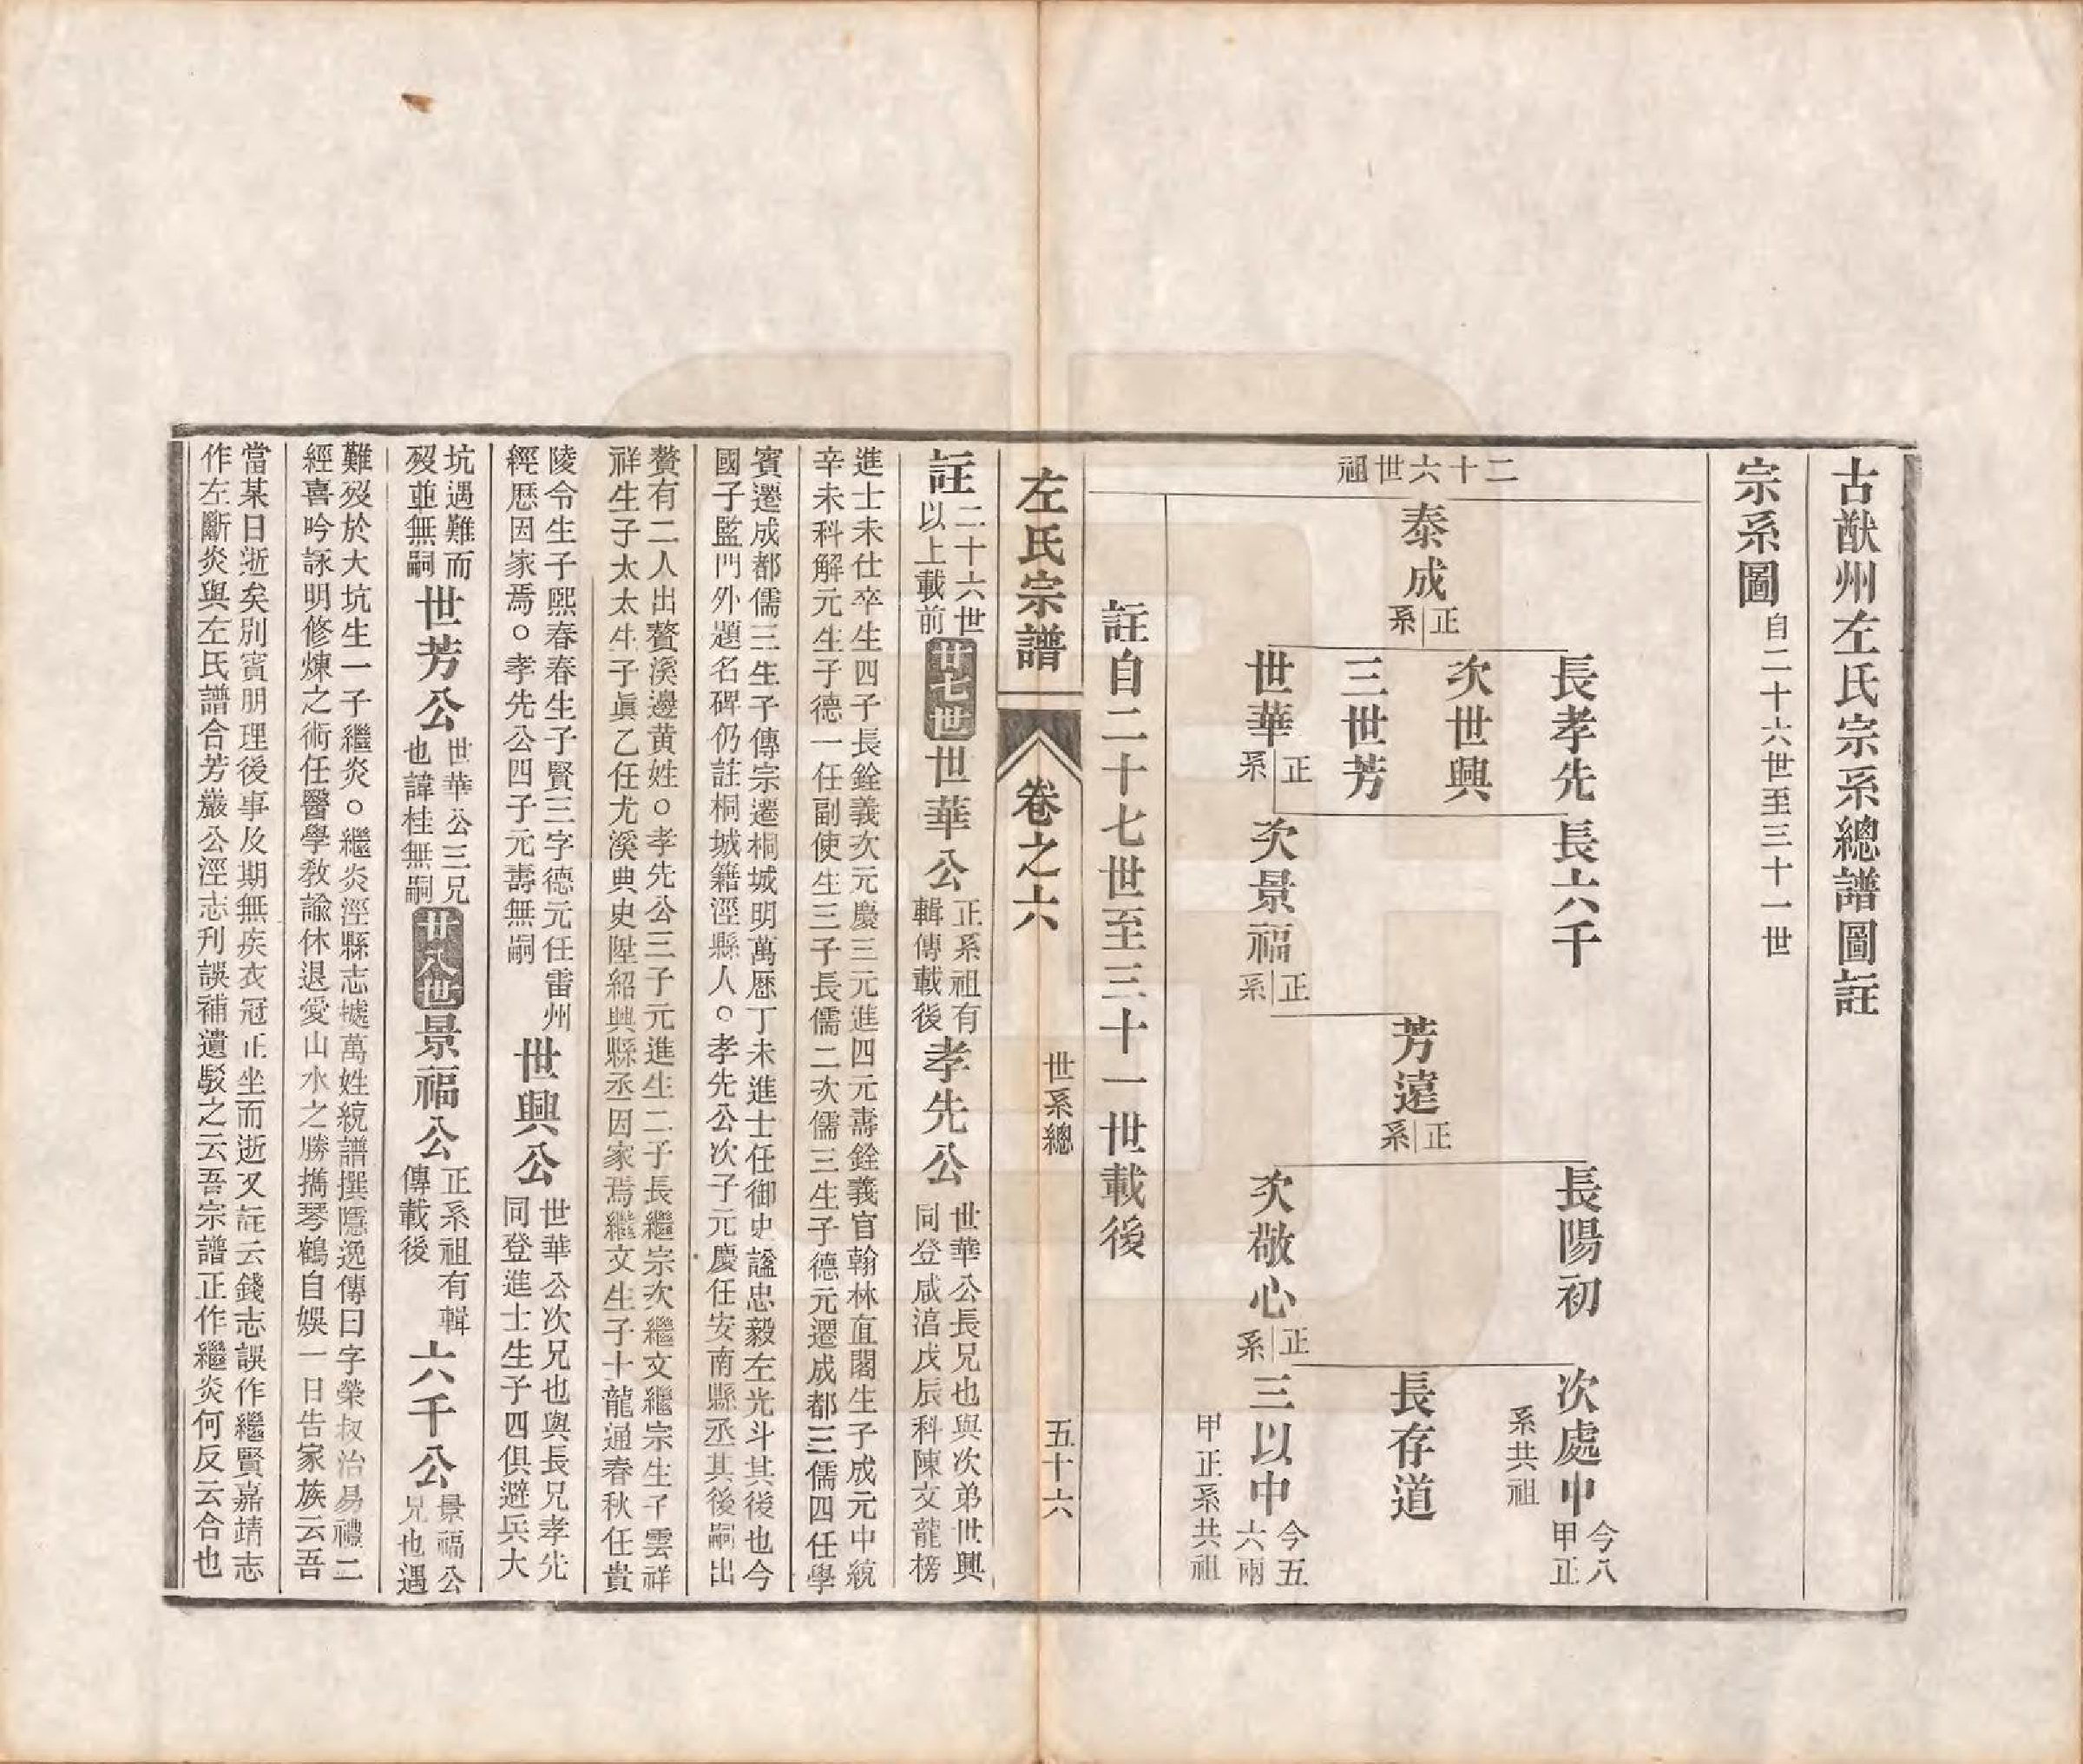 古猷州左氏宗系總譜圖註
宗系圖 自二十六世至三十一世
二十六世祖
泰成 正系
長孝先
次世興
三世芳
世華 正系
長六千
次景福 正系
芳遠 正系
長陽初
次敬心 正系
次處中 今八甲正系共祖
長存道
三以中 今五六兩甲正系共祖
註自二十七世至三十一世載後
左氏宗譜 卷之六 世系總 五十六
註 二十六世以上載前 廿七世 世華公 正系祖有輯傳載後 孝先公 世華公長兄也與次弟世興同登咸淊戊辰科陳文龍榜
進士未仕卒生四子長銓義次元慶三元進四元壽銓義官翰林直閣生子成元中統
辛未科解元生子德一任副使生三子長儒二次儒三生子德元遷成都三儒四任學
賓遷成都儒三生子傳宗遷桐城明萬歷丁未進士任御史諡忠毅左光斗其後也今
國子監門外題名碑仍註桐城籍涇縣人○孝先公次子元慶任安南縣丞其後嗣出
贅有二人出贅溪邊黄姓○孝先公三子元進生二子長繼宗次繼文繼宗生子雲祥
祥生子太太生子眞乙任尤溪典史陞紹興縣丞因家焉繼文生子十龍通春秋任貴
陵令生子熙春春生子賢三字德元任雷州
經歷因家焉○孝先公四子元壽無嗣 世興公 世華公次兄也與長兄孝先同登進士生子四俱避兵大
坑遇難而歿並無嗣 世芳公 世華公三兄也諱桂無嗣 廿八世 景福公 正系祖有輯傳載後 六千公 景福公兄也遇
難歿於大坑生一子繼炎○繼炎涇縣志據萬姓統譜撰隱逸傳曰字榮叔治易禮二
經喜吟詠明修煉之術任醫學教諭休退愛山水之勝攜琴鶴自娛一日告家族云吾
當某日逝矣別賓朋理後事及期無疾衣冠正坐而逝又註云錢志誤作繼賢嘉靖志
作左斷炎與左氏譜合芳嚴公涇志刋誤補遺駁之云吾宗譜正作繼炎何反云合也